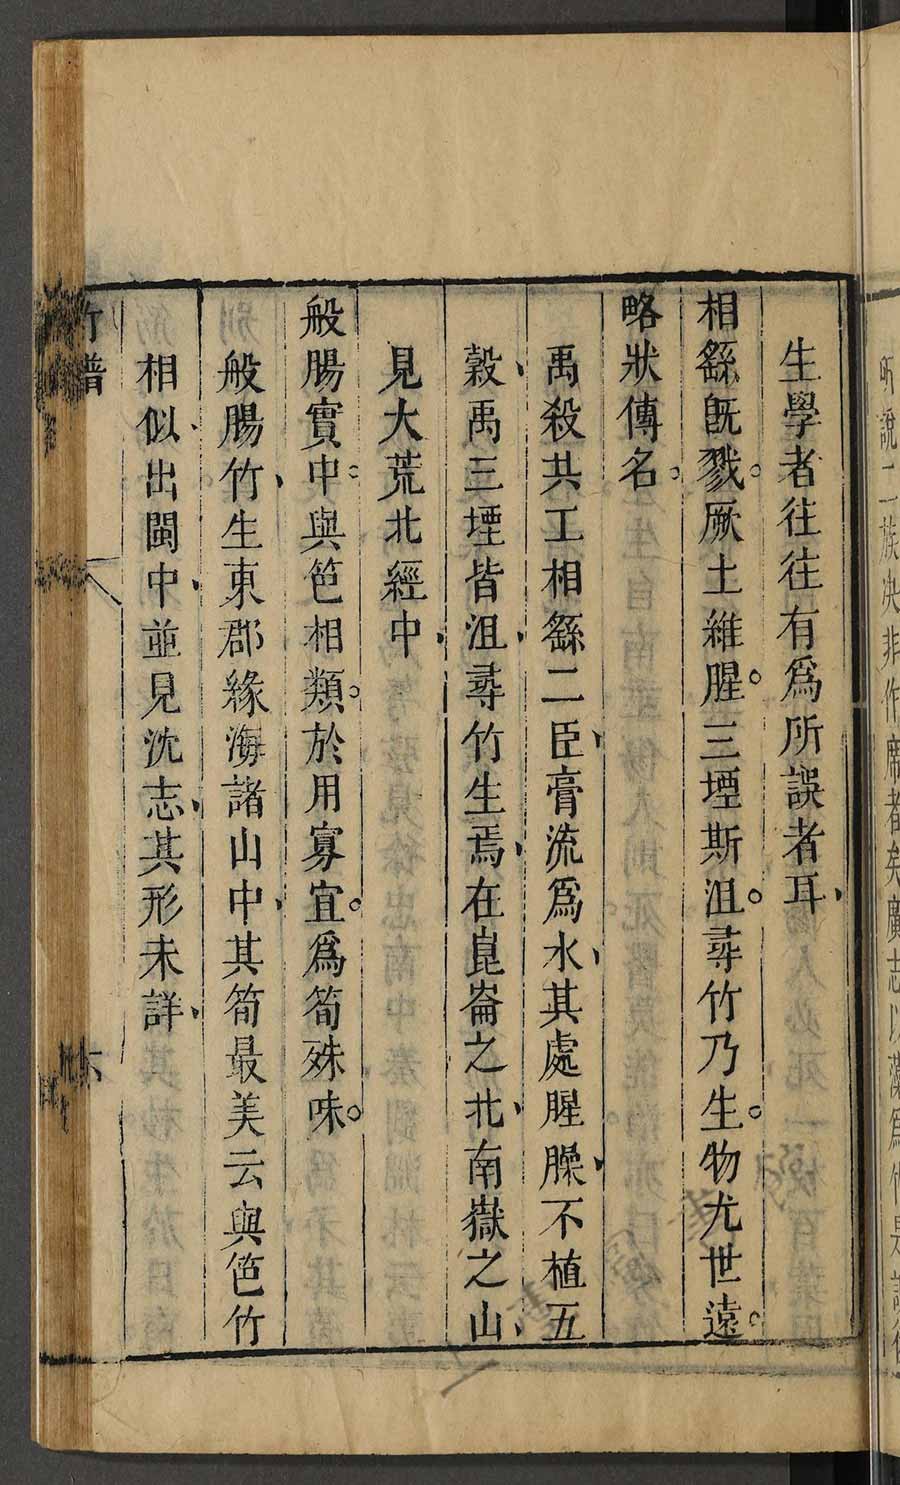 所說二族決非作席者矣廣志以藻爲竹是
生學者往往有爲所誤者耳、
相繇旣戮。厥土維腥。三堙斯沮。尋竹乃生。物尤世遠。
略狀傳名。
禹殺共工相繇二臣、膏流爲水、其處腥臊、不植五
穀、禹三堙皆沮、尋竹生焉、在崑崙之北、南嶽之山、
見大荒北經中、
般腸實中。與笆相類。於用寡宜。爲筍殊味。
般腸竹、生東郡緣海諸山中、其筍最美云與笆竹
相似、出閩中、並見沈志、其形未詳、
竹譜
六